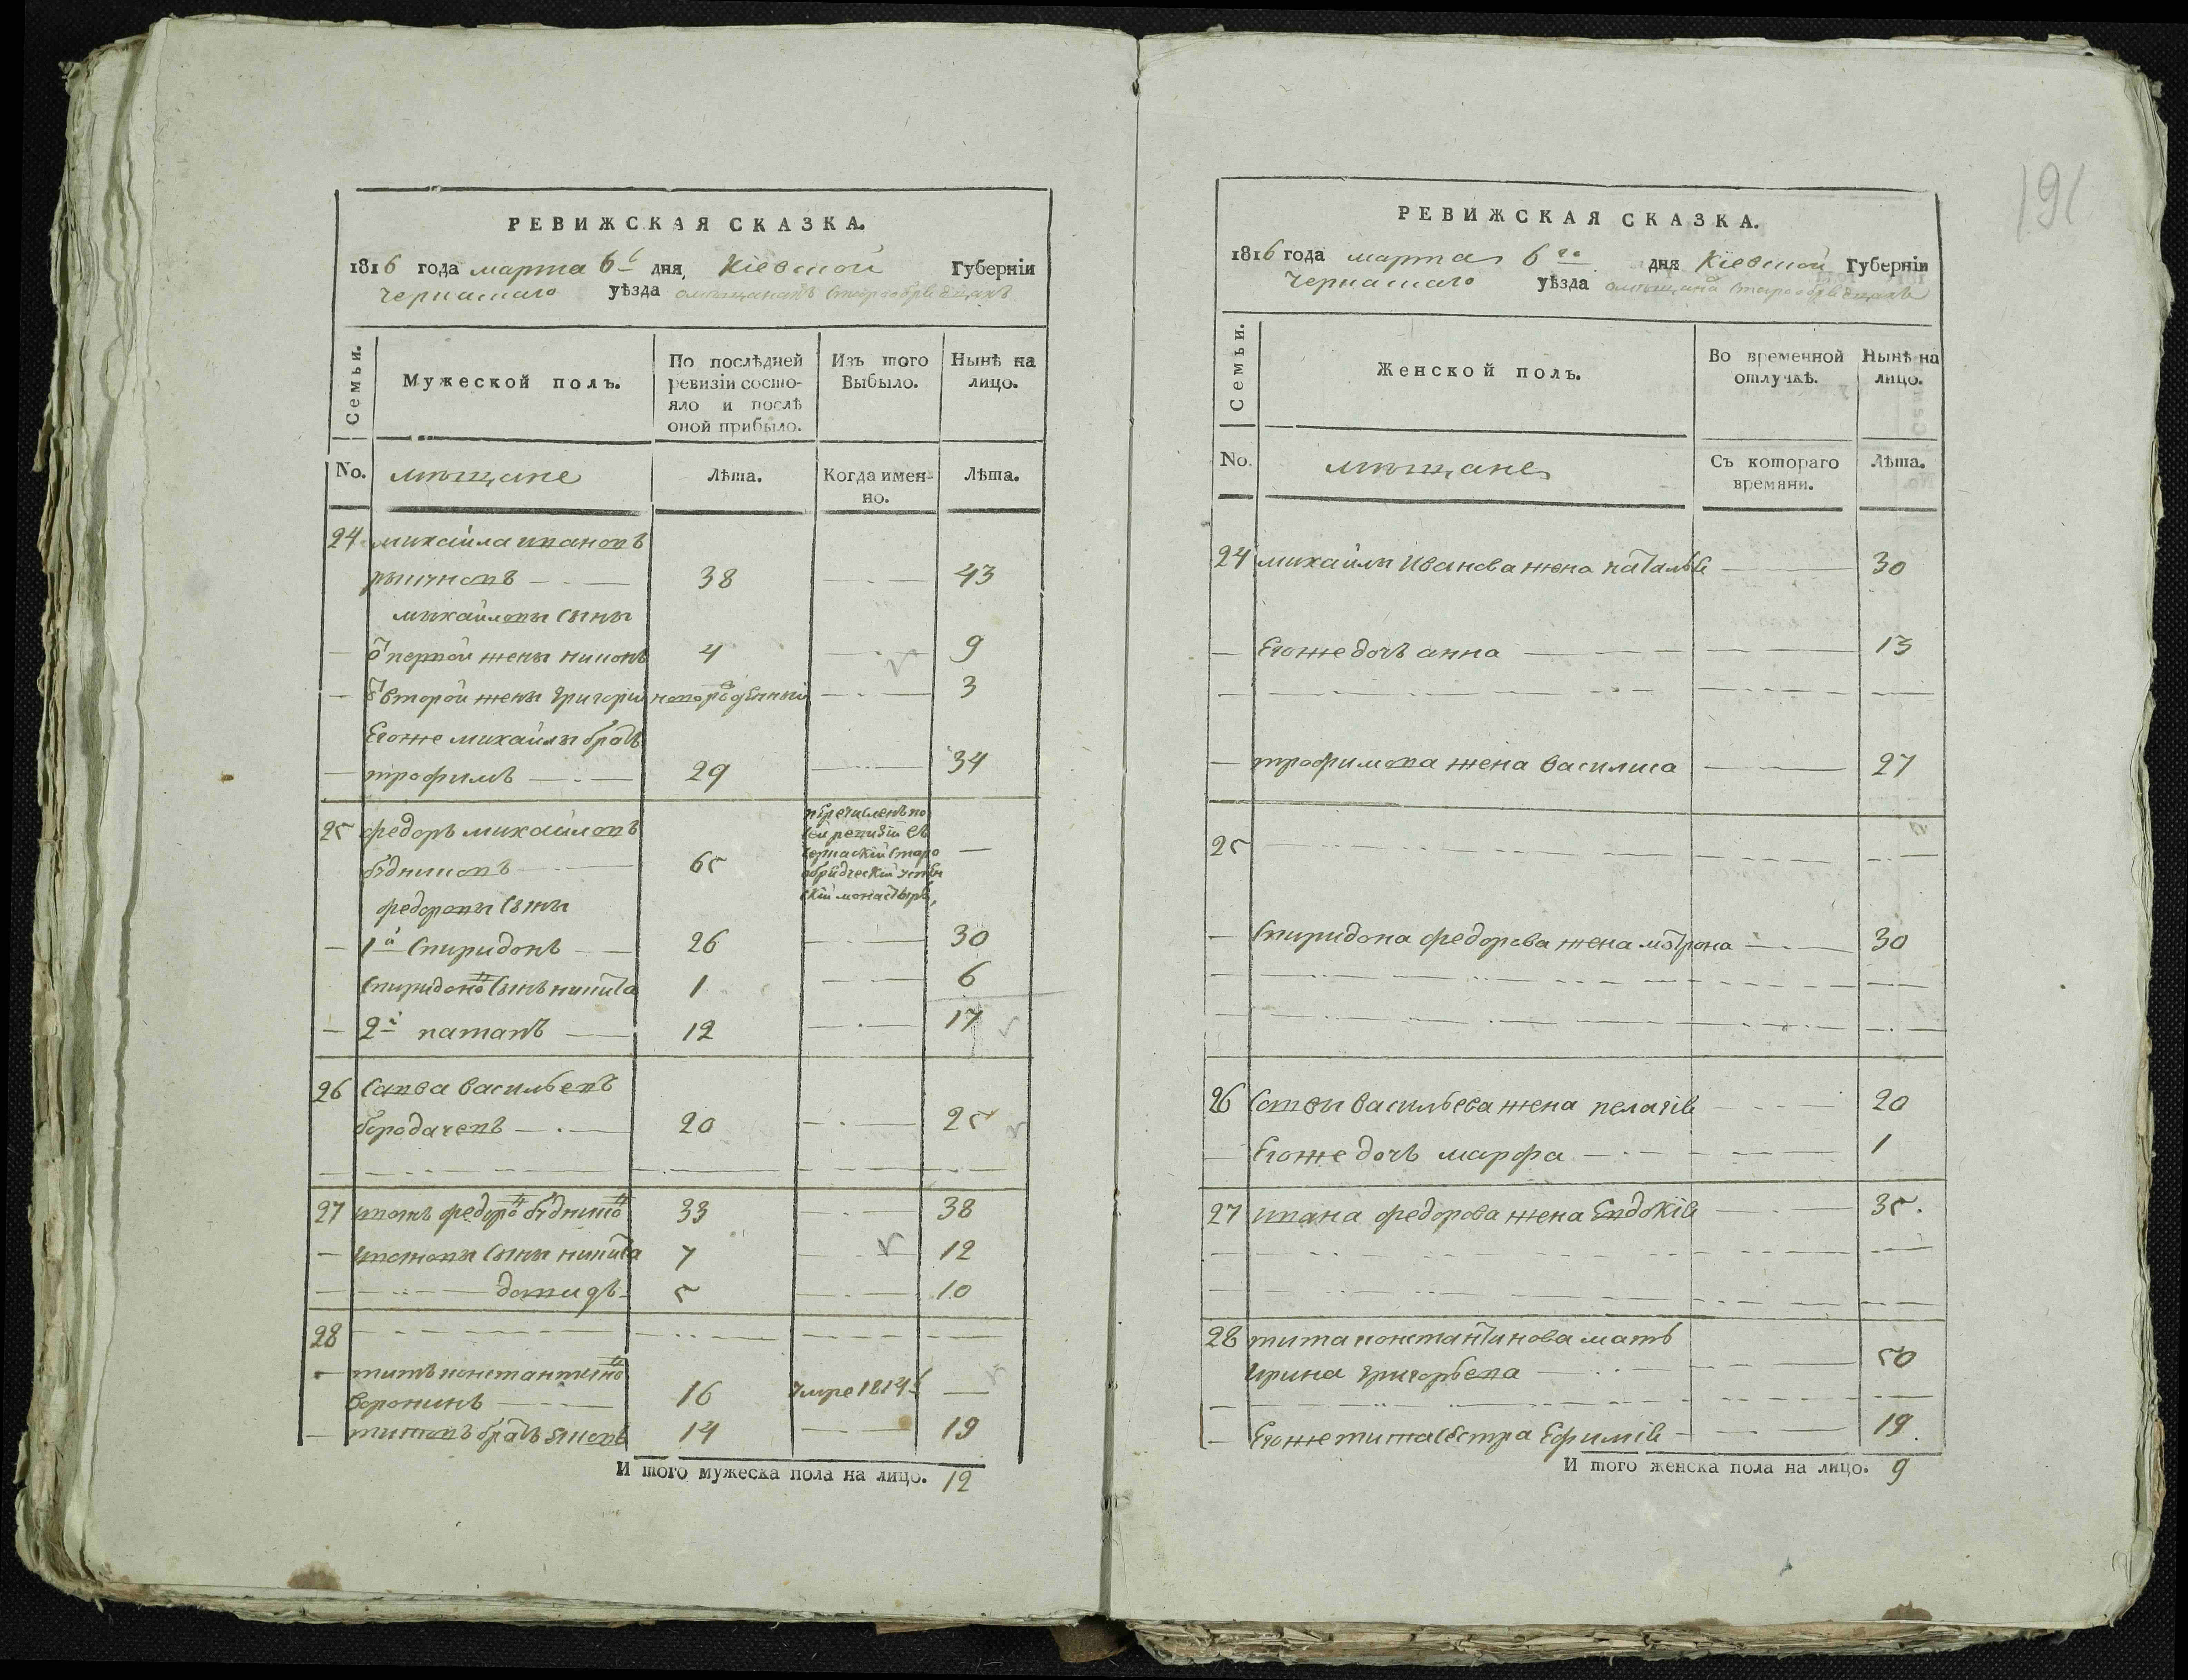 РЕВИЖСКАЯ СКАЗКА.
1816 года марта 6 дня, Кіевской Губерніи
Черкаскаго уѣзда о мѣщанахъ старообрядцахъ
Семьи.
Мужеской полъ.
По послѣдней ревизіи состояло и послѣ оной прибыло.
Изъ того Выбыло.
Нынѣ на лицо.
No. мѣщане
Лѣта.
Когда именно.
Лѣта.
24 михайла ивановъ
38 43
михайловы сыны
ѿ первой жены никонъ 4 9
ѿ второй жены григорий новорожденный 3
Егоже михайлы братъ
трофимъ 29 34
25 федоръ михайловъ
65
перечисленъ по
сей ревизіи въ
Черкаскій старо
обрядческій
скій монастырь,
федоровы сыны
1й спиридонъ 26 30
спиридоно сынъ никита 1 6
2й патапъ 12 17
26 савва васильевъ
бородачевъ 20 25
27 иванъ федоро 33 38
ивановы сыны никита 7 12
давидъ 5 10
28
титъ константино
воронинъ 16 умре 1814 —
титовъ братъ яковъ 14 19
И того мужеска пола на лицо. 12
191
РЕВИЖСКАЯ СКАЗКА.
1816 года марта 6го дня Кіевской Губерніи
Черкаскаго уѣзда о мѣщанахъ старообрядцахъ
Семьи.
Женской полъ.
Во временной отлучкѣ.
Нынѣ на лицо.
No. мѣщане
Съ котораго времяни.
Лѣта.
24 михайлы иванова жена наталья 30
Егоже дочь анна 13
трофимова жена василиса 27
25
спиридона федорова жена мотрона 30
26 саввы васильева жена пелагія 20
Егоже дочь марфа 1
27 ивана федорова жена Евдокія 35.
28 тита константинова мать
ирина григорьева 50
Егоже тита сестра Ефимія 19.
И того женска пола на лицо. 9